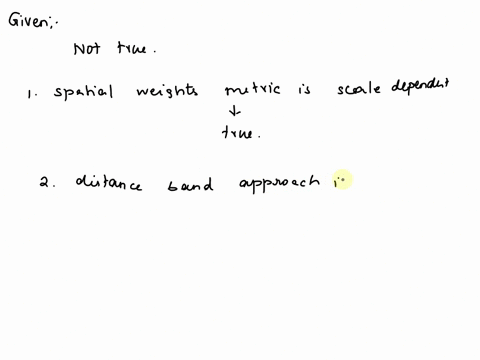 Given;-
Not true.
1. spatial weights metric is scale dependent
↓
true.
2. distance band approach i